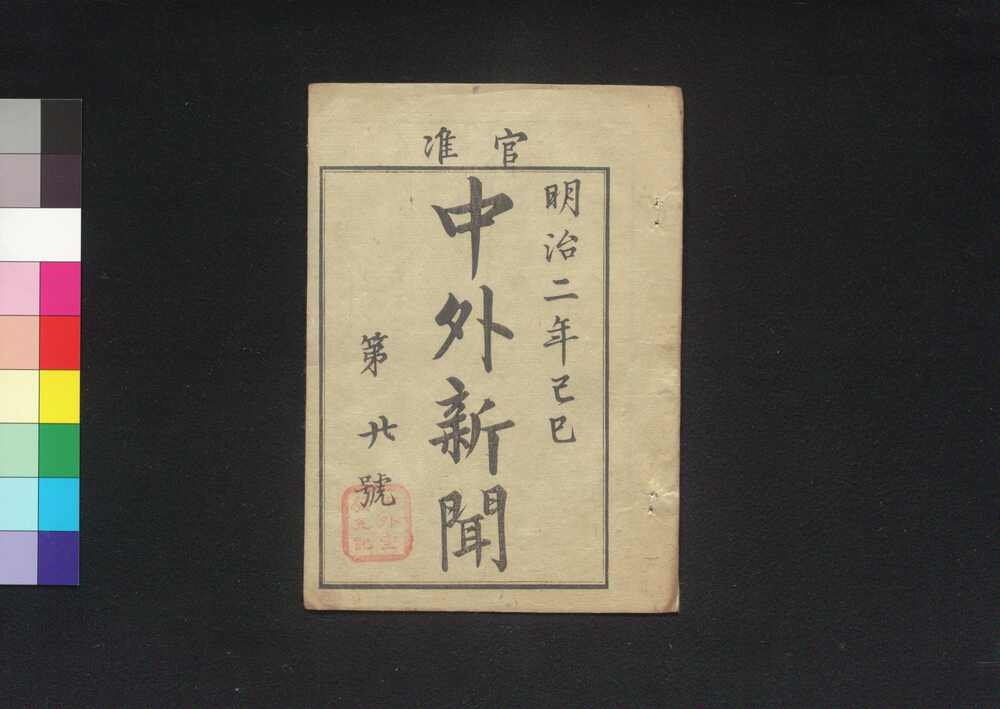 官准
明治二年己巳
中外新聞
第廿號